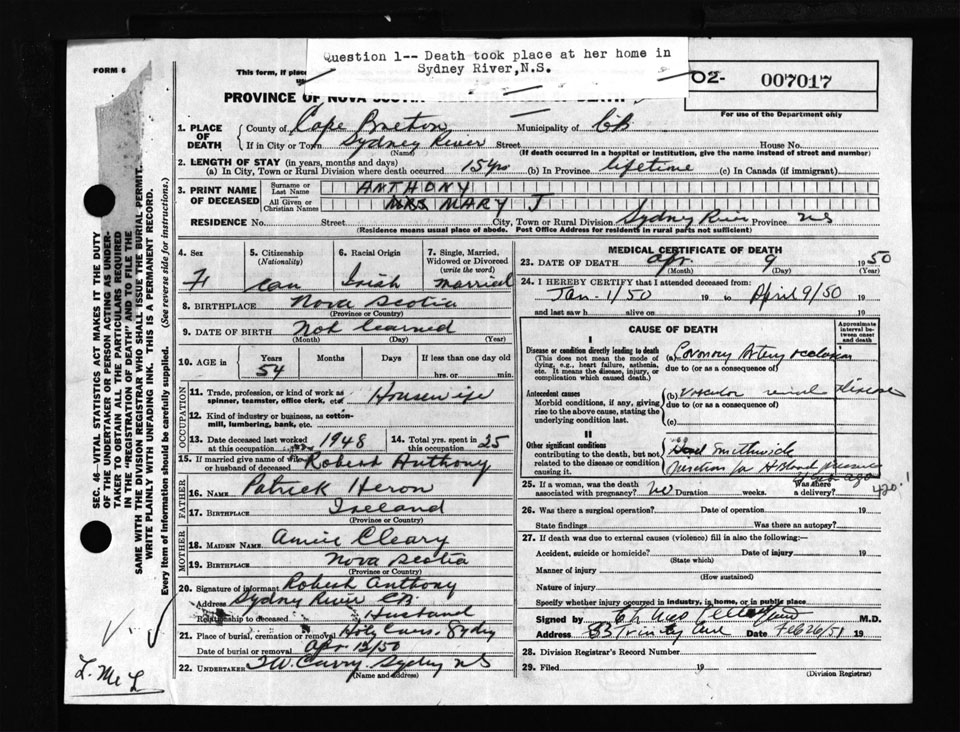 Question 1-- Death took place at her home in
Sydney River,N.S.
FORM 6
This form, if place
O2- 007017
PROVINCE OF NOVA SCOTIA
For use of the Department only
1. PLACE OF DEATH
County of Cape Breton Municipality of CB
If in City or Town Sydney River Street House No.
(Name) (If death occurred in a hospital or institution, give the name instead of street and number)
2. LENGTH OF STAY (in years, months and days)
(a) In City, Town or Rural Division where death occurred 15 yrs (b) In Province lifetime (c) In Canada (if immigrant)
3. PRINT NAME OF DECEASED
Surname or Last Name ANTHONY
All Given or Christian Names MRS MARY J
RESIDENCE No. Street City, Town or Rural Division Sydney River Province NS
(Residence means usual place of abode. Post Office Address for residents in rural parts not sufficient)
4. Sex
F
5. Citizenship (Nationality)
Can
6. Racial Origin
Irish
7. Single, Married, Widowed or Divorced (write the word)
married
8. BIRTHPLACE Nova Scotia
(Province or Country)
9. DATE OF BIRTH Not learned
(Month) (Day) (Year)
10. AGE in
Years Months Days If less than one day old
54 hrs. or min.
OCCUPATION
11. Trade, profession, or kind of work as spinner, teamster, office clerk, etc. Housewife
12. Kind of industry or business, as cotton-mill, lumbering, bank, etc.
13. Date deceased last worked at this occupation 1948
14. Total yrs. spent in 25
15. If married give name of wife or husband of deceased Robert Anthony
FATHER
16. NAME Patrick Heron
17. BIRTHPLACE Ireland
(Province or Country)
MOTHER
18. MAIDEN NAME Annie Cleary
19. BIRTHPLACE Nova Scotia
(Province or Country)
20. Signature of informant Robert Anthony
Address Sydney River CB
Relationship to deceased Husband
21. Place of burial, cremation or removal Holy Cross, Sydney
Date of burial or removal Apr 12/50
22. UNDERTAKER T.W. Curry Sydney NS
(Name and address)
MEDICAL CERTIFICATE OF DEATH
23. DATE OF DEATH Apr. 9 1950
(Month) (Day) (Year)
24. I HEREBY CERTIFY that I attended deceased from:
Jan-1/50 19 to April 9/50 19
and last saw h alive on 19
CAUSE OF DEATH
Approximate interval between onset and death
I
Disease or condition directly leading to death
(This does not mean the mode of dying, e.g., heart failure, asthenia, etc. It means the disease, injury, or complication which caused death.)
(a) Coronary Artery occlusion
due to (or as a consequence of)
Antecedent causes
Morbid conditions, if any, giving rise to the above cause, stating the underlying condition last.
(b) Vascular renal disease
due to (or as a consequence of)
(c)
II
Other significant conditions contributing to the death, but not related to the disease or condition causing it.
Had Smithwick
for H Blood pressure
ago
420.1
25. If a woman, was the death associated with pregnancy? No Duration weeks. Was there a delivery?
26. Was there a surgical operation? Date of operation 19
State findings Was there an autopsy?
27. If death was due to external causes (violence) fill in also the following:—
Accident, suicide or homicide? Date of injury 19
(State which)
Manner of injury
(How sustained)
Nature of injury
Specify whether injury occurred in industry, in home, or in public place
Signed by M.D.
Address 53 Trinity Ave Date Feb 26/51 19
28. Division Registrar's Record Number
29. Filed 19
(Division Registrar)
SEC. 46—VITAL STATISTICS ACT MAKES IT THE DUTY
OF THE UNDERTAKER OR PERSON ACTING AS UNDER-
TAKER TO OBTAIN ALL THE PARTICULARS REQUIRED
IN THE "REGISTRATION OF DEATH" AND TO FILE THE
SAME WITH THE DIVISION REGISTRAR WHO SHALL ISSUE THE BURIAL PERMIT.
WRITE PLAINLY WITH UNFADING INK. THIS IS A PERMANENT RECORD.
Every item of Information should be carefully supplied. (See reverse side for instructions.)
L. McL